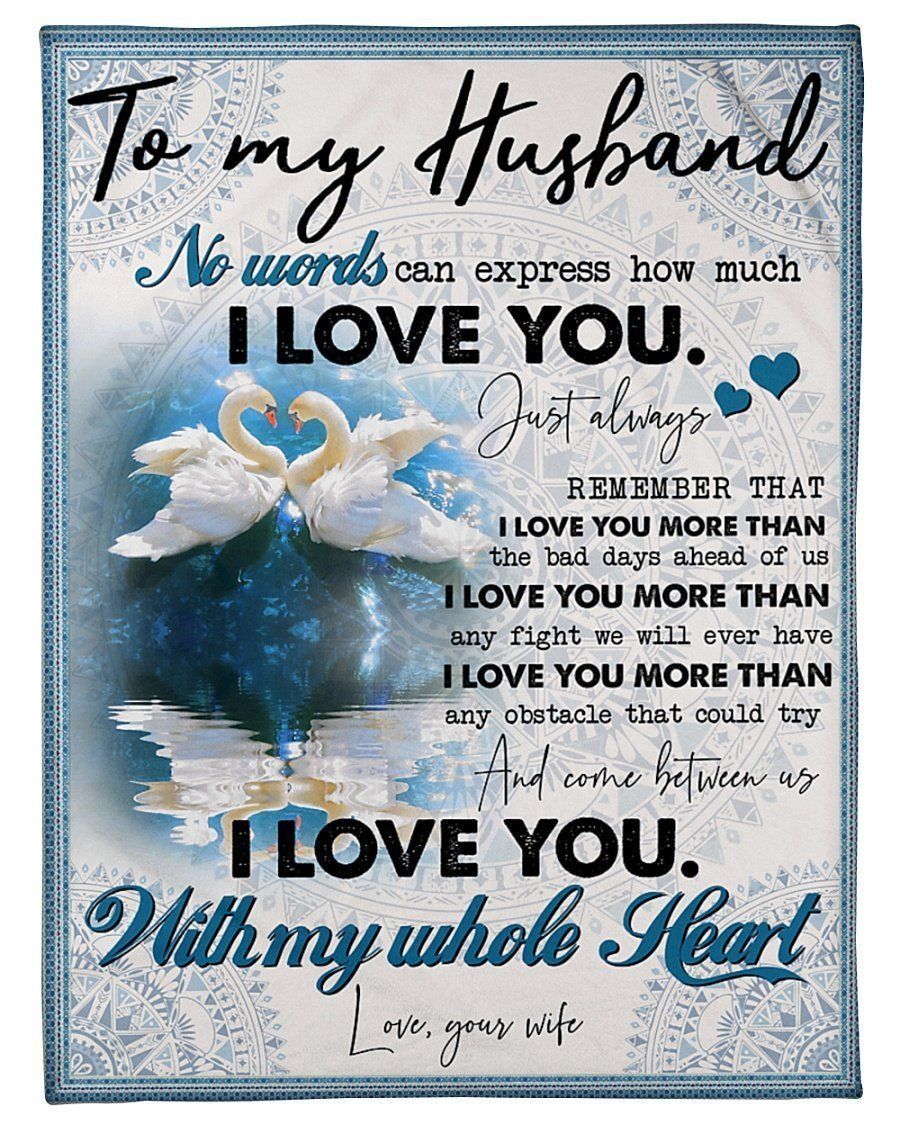 To my Husband
No words can express how much
I LOVE YOU.
Just always
REMEMBER THAT
I LOVE YOU MORE THAN
the bad days ahead of us
I LOVE YOU MORE THAN
any fight we will ever have
I LOVE YOU MORE THAN
any obstacle that could try
And come between us
I LOVE YOU.
With my whole Heart
Love, your wife